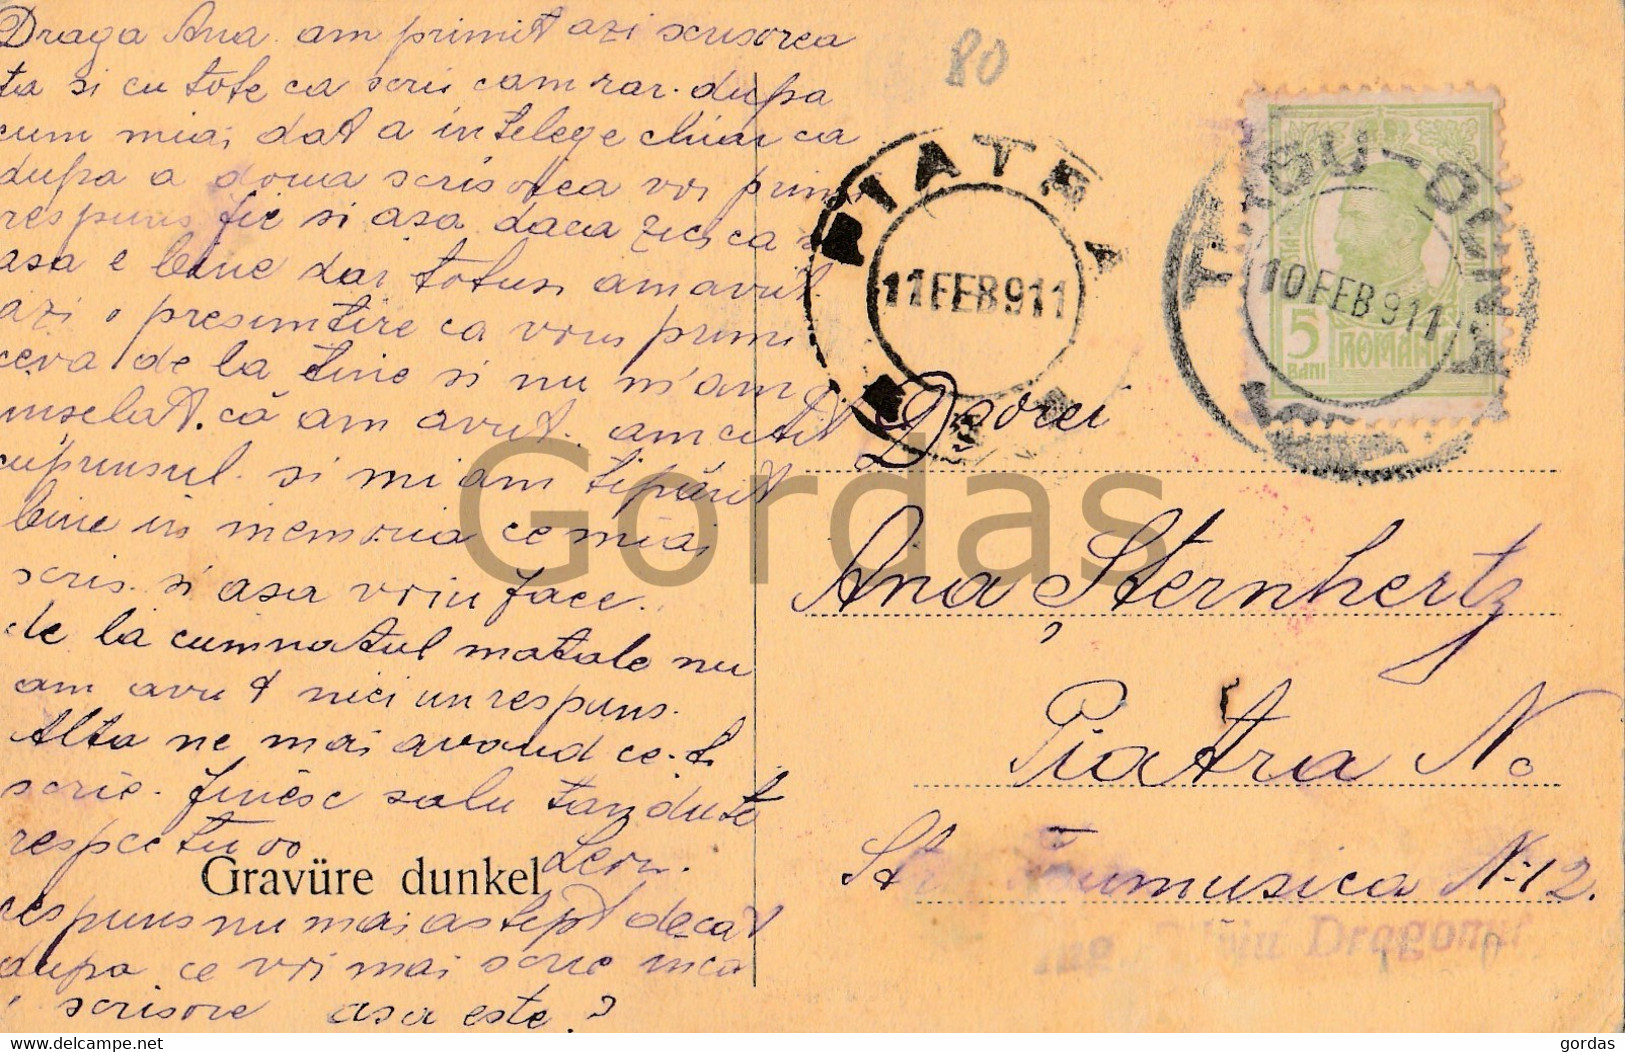 Draga Ana am primit azi scrisorea
ta si cu tote ca scrii cam rar. dupa
cum miai dat a intelege chiar ca
dupa a doua scrisorea voi primi
respuns fie si asa daca zici ca
asa e bine dar totusi am avut
azi o presimtire ca voiu primi
ceva de la tine si nu m'am
inselat. că am avut. am citit
cuprinsul. si mi am tipărit
bine in memoria ce miai
scris. si asa voiu face.
de la cumnatul matale nu
am avut nici un respuns.
Alta ne mai avand ce-ti
scrie. finesc salu tandute
respectuos
Leon.
Gravüre dunkel
respuns nu mai astept decat
dupa ce voi mai scrie inca
scrisore asa este?
80
PIATRA
11 FEB 911
10 FEB 911
5
BANI
ROMANIA
D-sorei
Ana Șternhertz
Piatra N.
Str. Frumusica N: 12.
Ing. Dragomir
Gordas
delcampe.net
gordas